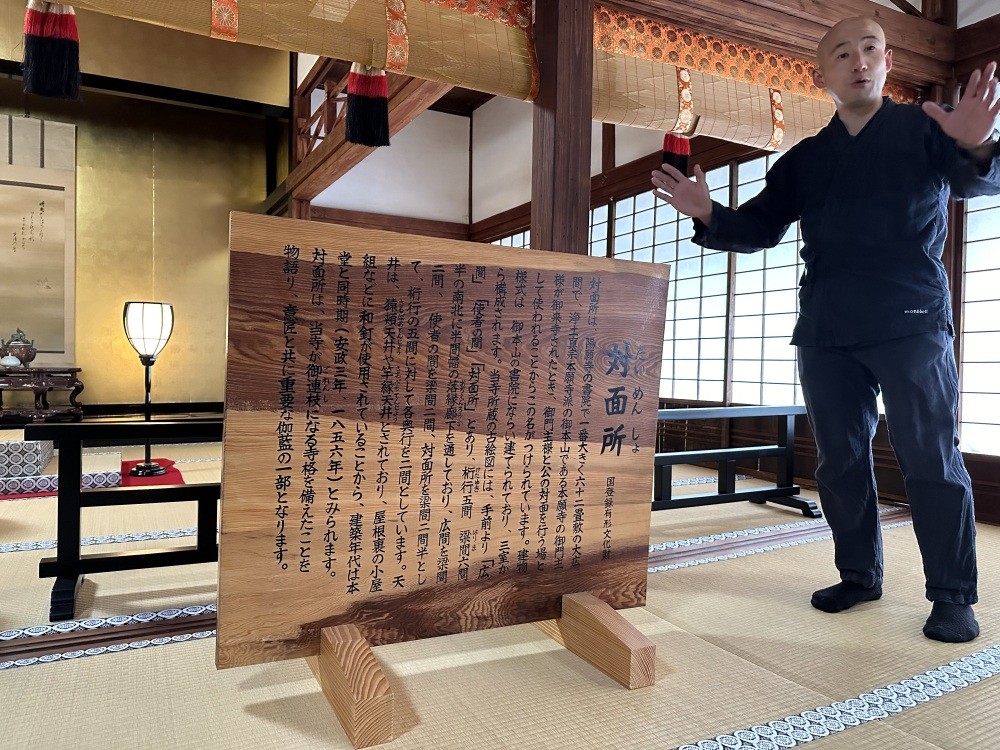 対面所
たいめんしょ
国登録有形文化財
対面所は、
の書院で一番大きく六十二畳敷の大広
間で、浄土真宗本願寺派の御本山である本願寺の御門主
様が御来寺されたとき、御門主様と公の対面を行う場と
して使われることからこの名がつけられています。建物
様式は、御本山の書院にならい建てられており、三室か
ら構成されます。当寺所蔵の古絵図には、手前より「広
間」「使者の間」「対面所」とあり、桁行五間、梁間六間
半の南北に半間幅の落縁廊下を通しており、広間を梁間
二間、使者の間を梁間二間、対面所を梁間二間半とし
て、桁行の五間に対して各奥行を二間としています。天
井は、猿頬天井や竿縁天井とされており、屋根裏の小屋
組などに和釘が使用されていることから、建築年代は本
堂と同時期（安政三年、一八五六年）とみられます。
対面所は、当寺が御連枝になる寺格を備えたことを
物語り、意匠と共に重要な伽藍の一部となります。